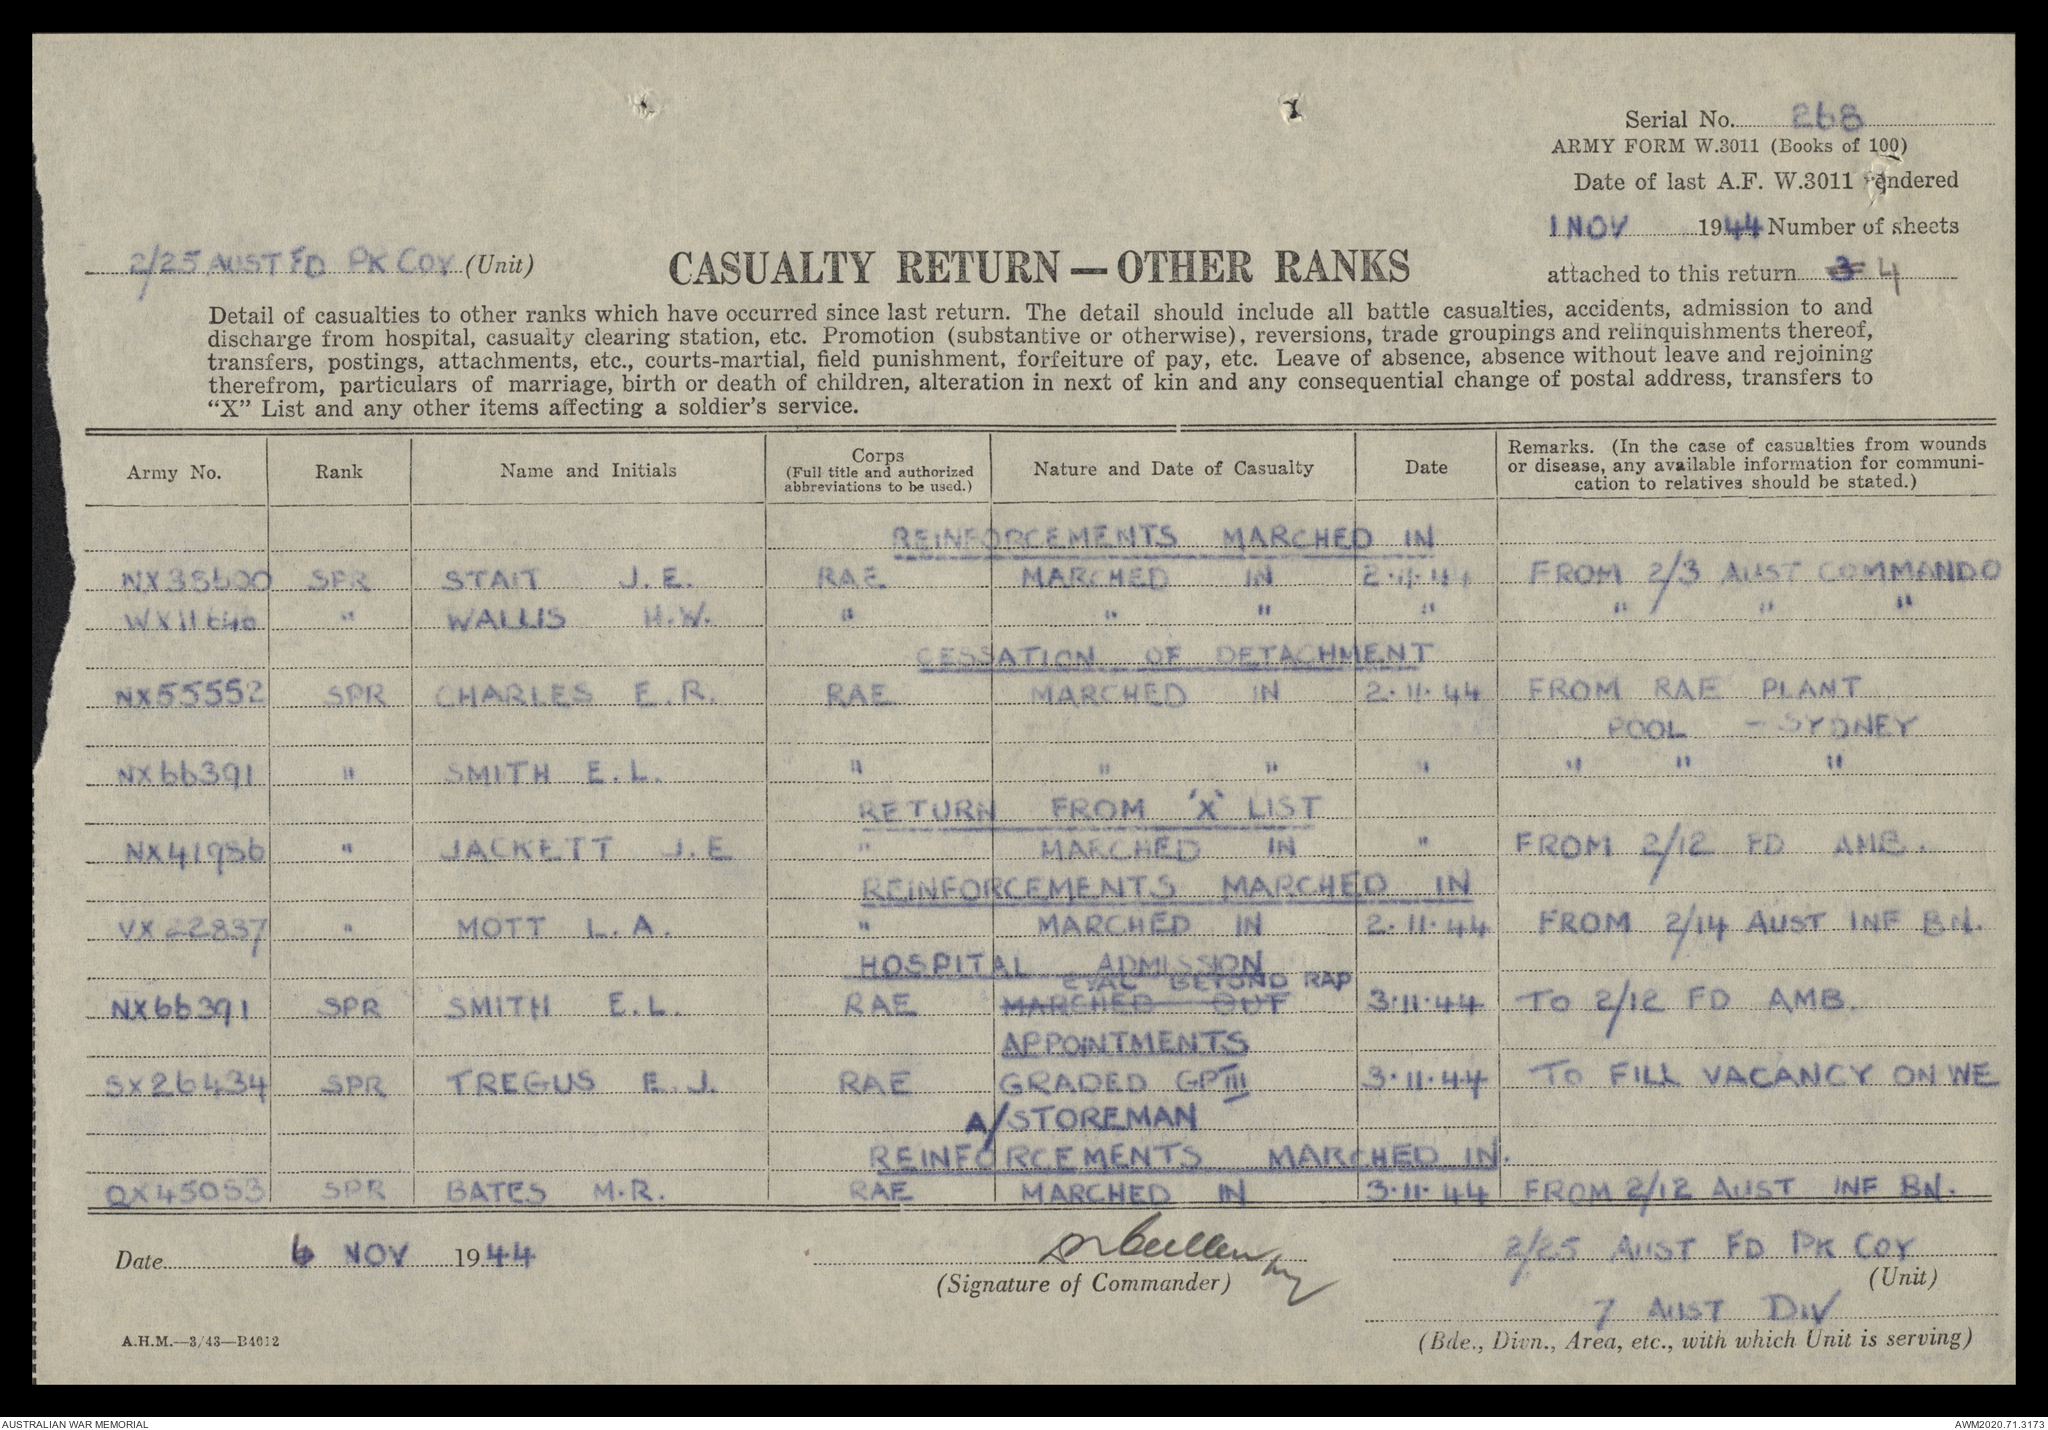 Serial No. 268
ARMY FORM W.3011 (Books of 100)
Date of last A.F. W.3011 rendered
1 NOV 1944 Number of sheets
attached to this return 3 4
2/25 AUST FD PK COY (Unit)
CASUALTY RETURN — OTHER RANKS
Detail of casualties to other ranks which have occurred since last return. The detail should include all battle casualties, accidents, admission to and
discharge from hospital, casualty clearing station, etc. Promotion (substantive or otherwise), reversions, trade groupings and relinquishments thereof,
transfers, postings, attachments, etc., courts-martial, field punishment, forfeiture of pay, etc. Leave of absence, absence without leave and rejoining
therefrom, particulars of marriage, birth or death of children, alteration in next of kin and any consequential change of postal address, transfers to
"X" List and any other items affecting a soldier's service.
Army No. Rank Name and Initials Corps (Full title and authorized abbreviations to be used.) Nature and Date of Casualty Date Remarks. (In the case of casualties from wounds or disease, any available information for communi-cation to relatives should be stated.)
REINFORCEMENTS MARCHED IN
SPR STAIT J.E. RAE MARCHED IN 2.11.44 FROM 2/3 AUST COMMANDO
" WALLIS H.W. " " " " " " "
CESSATION OF DETACHMENT
NX55552 SPR CHARLES E.R. RAE MARCHED IN 2.11.44 FROM RAE PLANT
POOL - SYDNEY
NX66391 " SMITH E.L. " " " " " " "
RETURN FROM 'X' LIST
NX41986 " JACKETT J.E " MARCHED IN " FROM 2/12 FD AMB.
REINFORCEMENTS MARCHED IN
VX22837 " MOTT L.A. " MARCHED IN 2.11.44 FROM 2/14 AUST INF BN.
HOSPITAL ADMISSION
EVAC BEYOND RAP
NX66391 SPR SMITH E.L. RAE MARCHED OUT 3.11.44 TO 2/12 FD AMB.
APPOINTMENTS
SX26434 SPR TREGUS E.J. RAE GRADED GP III 3.11.44 TO FILL VACANCY ON WE
A/STOREMAN
REINFORCEMENTS MARCHED IN.
QX45053 SPR BATES M.R. RAE MARCHED IN 3.11.44 FROM 2/12 AUST INF BN.
Date 6 NOV 1944
(Signature of Commander)
2/25 AUST FD PK COY
(Unit)
7 AUST DIV
(Bde., Divn., Area, etc., with which Unit is serving)
A.H.M.—3/43—B4012
AUSTRALIAN WAR MEMORIAL
AWM2020.71.3173